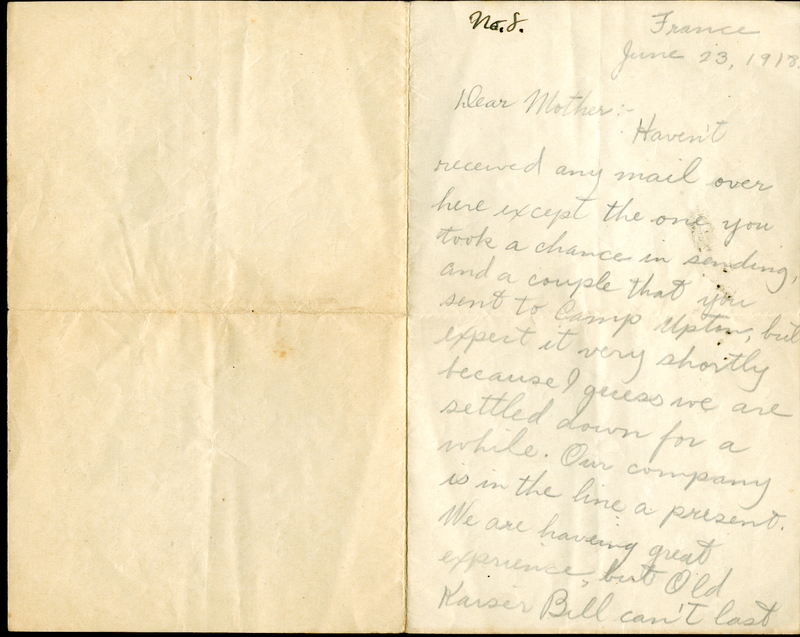 No. 8.
France
June 23, 1918.
Dear Mother:-
Haven't
received any mail over
here except the one you
took a chance in sending,
and a couple that you
sent to Camp Upton, but
expect it very shortly
because I guess we are
settled down for a
while. Our company
is in the line a present.
We are haveing great
exprience, but Old
Kaiser Bill can't last